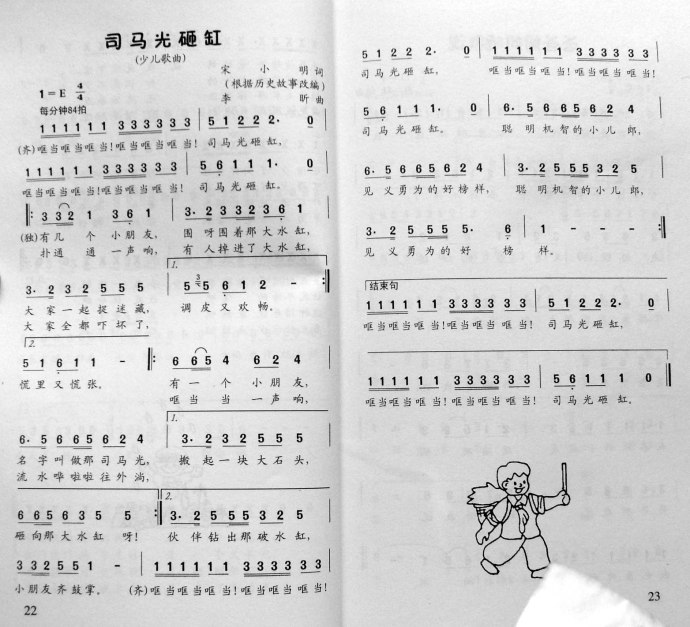 司马光砸缸
(少儿歌曲)
宋小明 词
1=E 4/4
(根据历史故事改编)
每分钟84拍
李昕 曲
1 1 1 1 1 1 3 3 3 3 3 3 | 5 1 2 2 2. 0
(齐)哐当哐当哐当!哐当哐当哐当! 司马光砸缸,
1 1 1 1 1 1 3 3 3 3 3 3 | 5 6 1 1 1. 0
哐当哐当哐当!哐当哐当哐当! 司马光砸缸.
‖: 3 3 2 1 3 6 1 | 3. 2 3 3 2 3 6 1
(独)有几个小朋友, 围呀围着那大水缸,
扑通通一声响, 有人掉进了大水缸,
1.
3. 2 3 2 5 5 5 | 5 5 6 1 2 - :‖
大家一起捉迷藏, 调皮又欢畅。
大家全都吓坏了,
2.
5 1 6 1 1 - ‖: 6 6 5 4 6 2 4
慌里又慌张。 有一个小朋友,
哐当当一声响,
1.
6. 5 6 6 5 6 2 4 | 3. 2 3 2 5 5 5
名字叫做那司马光, 搬起一块大石头,
流水哗啦啦往外淌,
2.
6 6 5 6 5 5 - :‖ 3. 2 3 2 5 5 5
砸向那大水缸呀! 伙伴钻出那破水缸,
3 3 2 5 5 1 0 | 1 1 1 1 1 1 3 3 3 3 3 3
小朋友齐鼓掌。 (齐)哐当哐当哐当!哐当哐当哐当!
22
5 1 2 2 2. 0 | 1 1 1 1 1 1 3 3 3 3 3 3
司马光砸缸, 哐当哐当哐当!哐当哐当哐当!
5 6 1 1 1. 0 | 6. 5 6 5 6 2 4
司马光砸缸. 聪明机智的小儿郎,
6. 5 6 6 5 6 2 4 | 3. 2 5 5 5 3 2 5
见义勇为的好榜样, 聪明机智的小儿郎,
3. 2 5 5 5 5. 6 | 6 - :‖
见义勇为的好榜样。
结束句
1 1 1 1 1 1 3 3 3 3 3 3 | 5 1 2 2 2 2. 0
哐当哐当哐当!哐当哐当哐当! 司马光砸缸,
1 1 1 1 1 1 3 3 3 3 3 3 | 5 6 1 1 1 0
哐当哐当哐当!哐当哐当哐当! 司马光砸缸。
23